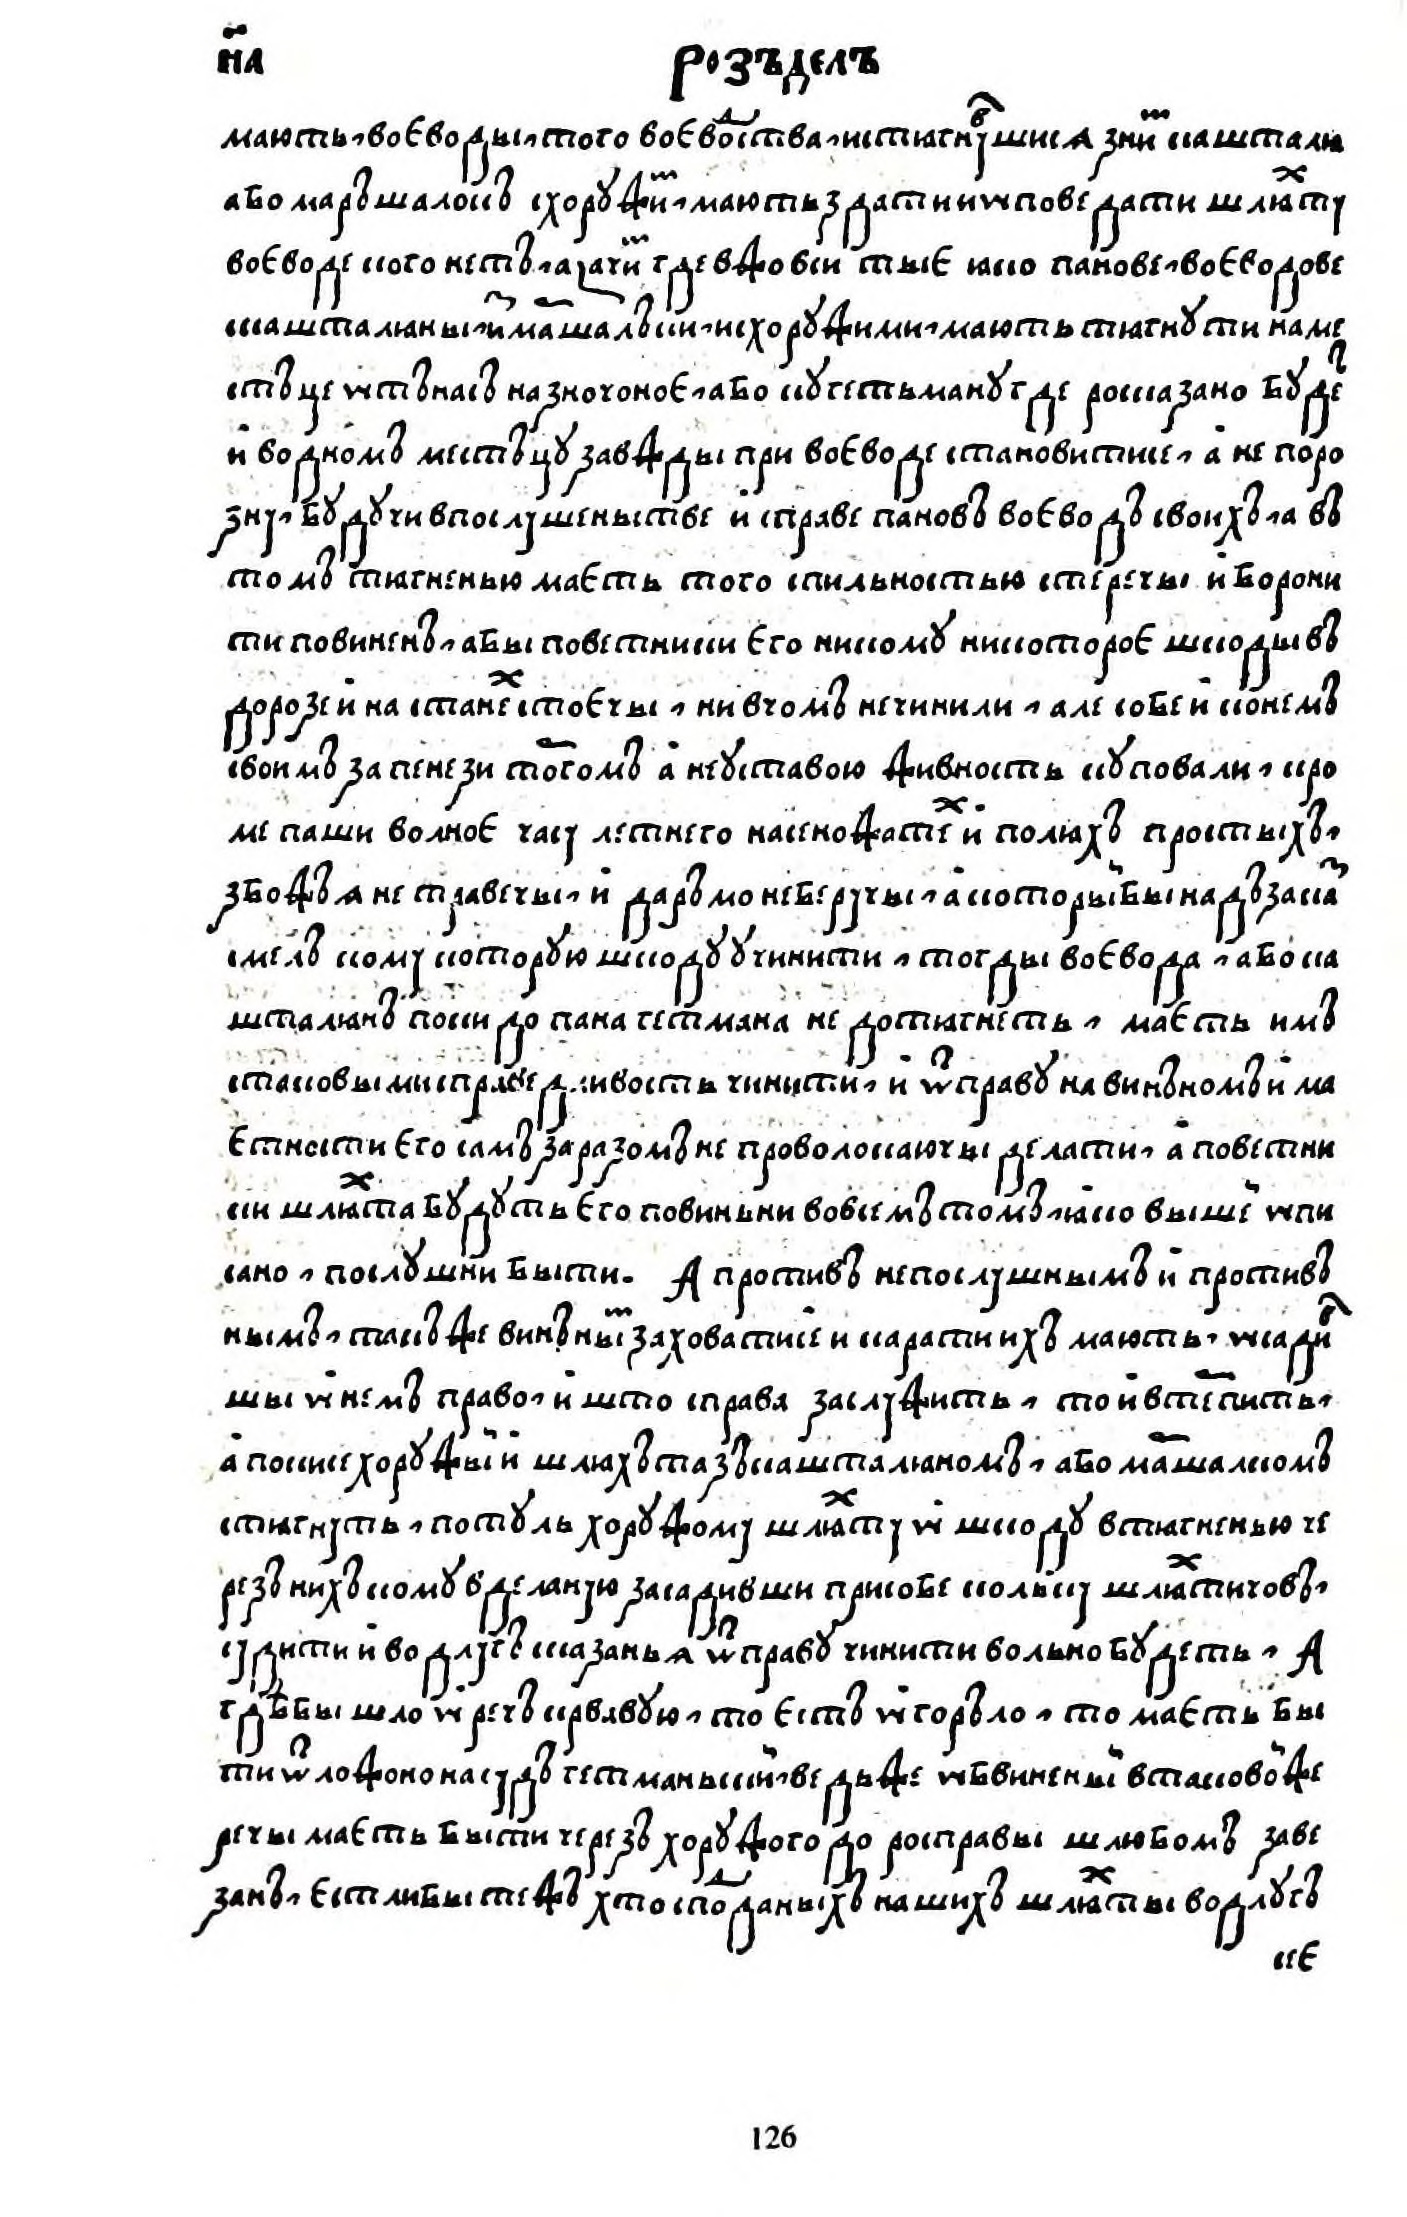 н҃а Розъделъ
мають, воєводы, того воєво́дства, истягнувшися з ни́мъ кашталя
або маръшалокъ схоружи́мъ, мають здати и ѡповедати шляхту
воєводе кого нетъ, а зачи́м, где вжо вси тыє яко панове, воєводове
кашталяны, и маршалъки, исхоружими, мають тягнути на ме
стъце ѿтънасъ назночоноє, або ку гетьману где росказано будеть
и водномъ местъцу завжды при воєводе становитисе, а не поро
зну, будучи впослушеньстве и справе пановъ воєводъ своихъ, а въ
томъ тягненью маєть того спильностью стеречы и борони
ти повиненъ, абы поветники єго никому никотороє шкоды въ
дорозе и на станехъ стоєчы, ни вчомъ нечинили, але собе и конемъ
своимъ за пенези торгомъ а не уставою живность куповали, кро
ме паши волноє часу летнего насеножатехъ и поляхъ простыхъ,
збожъя не травечы, и даръмо не беручы, а которы́й бы надъ заказ
смелъ кому которую шкоду учинити, тогды воєвода, або ка
шталянъ поки до пана гетмана не дотягнеть, маєть имъ
стаковыми справедливость чинити, и ѡтправу на винъномъ и ма
єтности єго самъ заразомъ не проволокаючы делати, а поветни
ки шляхта будуть єго повиньни вовсемъ томъ, яко вышей ѡпи
сано, послушни быти. А противъ непослушнымъ и противъ
нымъ, такъже винъным заховатисе и карати ихъ мають, ѡсадив
шы ѡ немъ право, и што справа заслужить, то и втерпить,
а покисе хоружый и шляхъта зъкашталяномъ, або маршалкомъ
стягнуть, потуль хоружому шляхту ѡ шкоду втягненью че
резъ нихъ кому вделаную засадивши при собе кольку шляхтичовъ,
судити и водлугъ сказанья ѡтправу чинити вольно будеть, А
гдебы шло ѡ речъ кръвавую, то єсть ѡ горъло, то маєть бы
ти ѿложоно на судъ гетманьский, ведьже ѡбвиненый втаковой же
речы маєть быти через хоружого до росправы шлюбомъ заве
занъ, Єстлибы тежъ хто с подданыхъ нашихъ шляхты водлугъ
сє
126